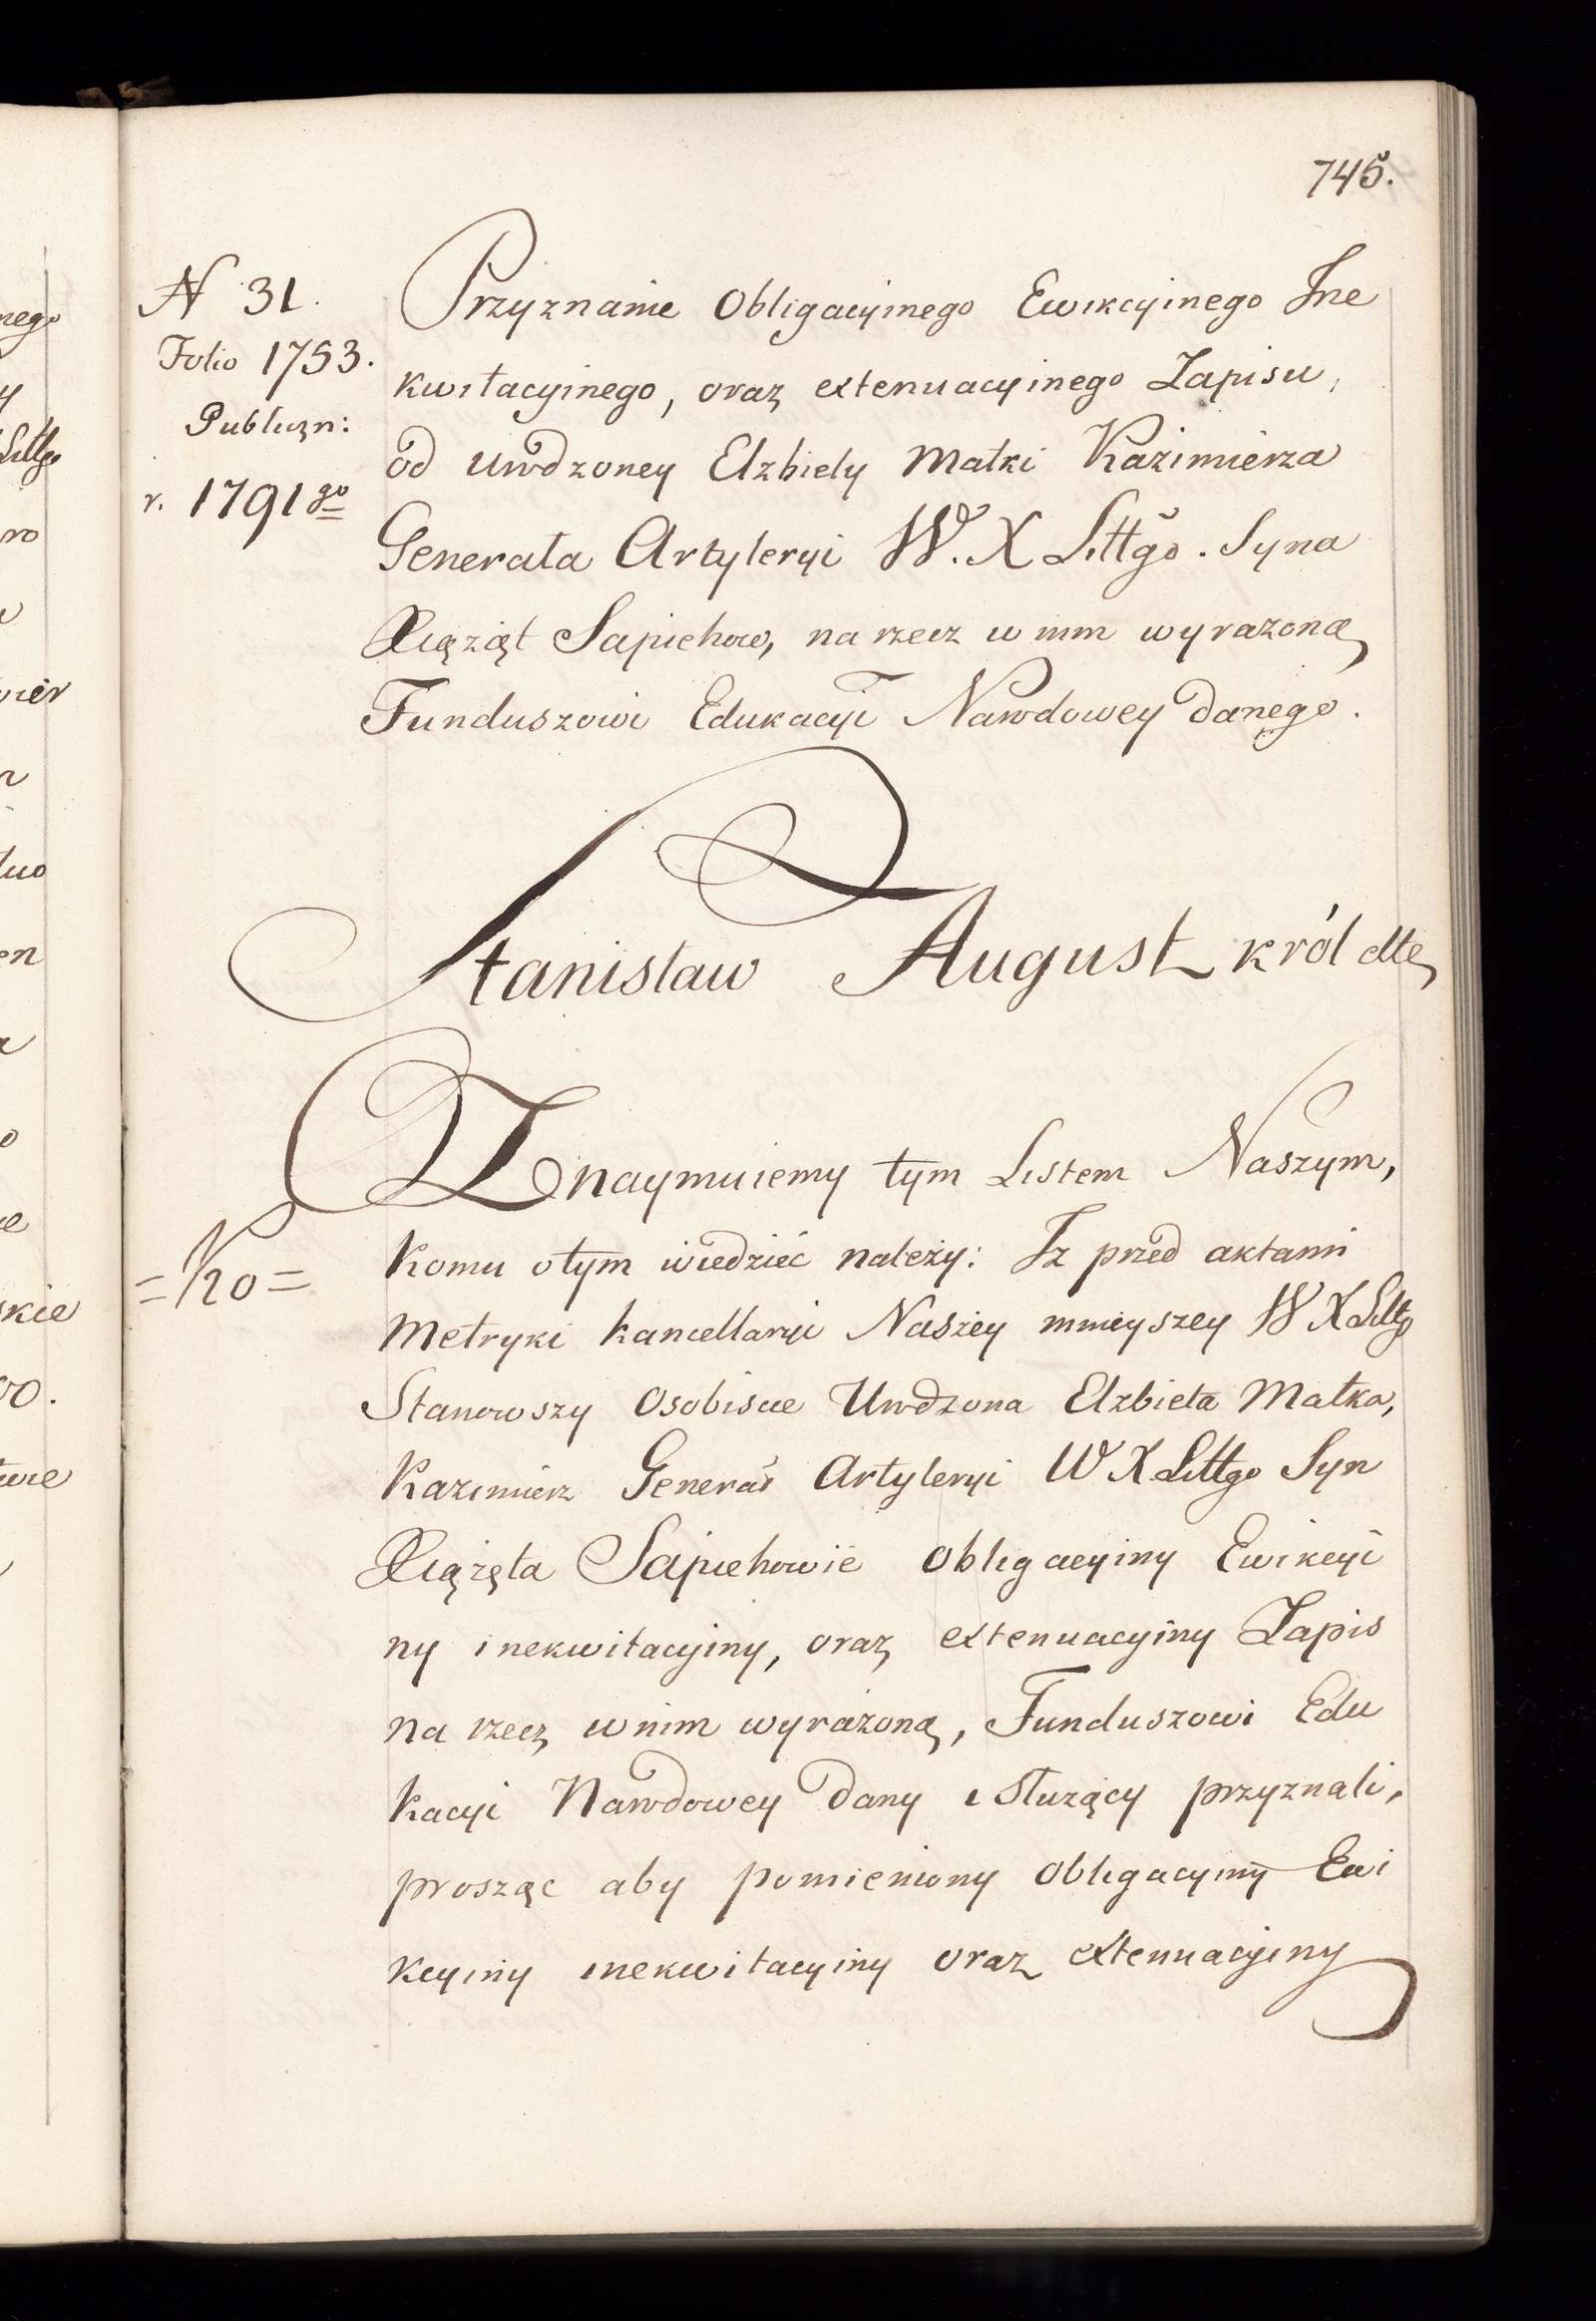 745.
N 31.
Folio 1753.
Publiczn:
r. 1791 go
Przyznanie Obligacyinego Ewikcyinego Ine
kwitacyinego, oraz extenuacyinego Zapisu,
od Urodzoney Elzbiety Matki Kazimierza
Generała Artyleryi W. X Littgo. Syna
Xiąząt Sapiehow, na rzecz w nim wyrazoną
Funduszowi Edukacyi Narodowey danego.
Stanisław August król etc
Znaymuiemy tym Listem Naszym,
Komu o tym wiedzieć należy: Iz przed aktami
Metryki kancellaryi Naszey mnieyszey W X Littgo
Stanowszy Osobiscie Urodzona Elzbieta Matka,
Kazimierz Generał Artyleryi W X Littgo Syn
Xiążęta Sapiehowie Obligacyiny Ewikcyi
ny inekwitacyiny, oraz extenuacyiny Zapis
na rzecz w nim wyrażoną, Funduszowi Edu
kacyi Narodowey dany i Służący przyznali,
prosząc aby pomieniony Obligacyiny Ewi
kcyiny inekwitacyiny oraz extenuacyiny